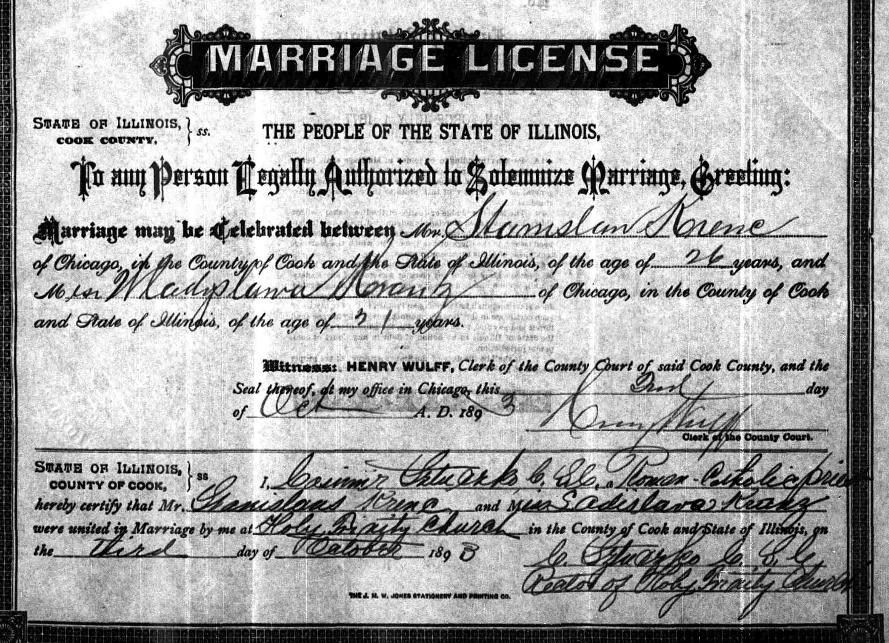 MARRIAGE LICENSE
STATE OF ILLINOIS, COOK COUNTY, } ss. THE PEOPLE OF THE STATE OF ILLINOIS,
To any Person Legally Authorized to Solemnize Marriage, Greeting:
Marriage may be Celebrated between Mr. Stanislaw Krenc
of Chicago, in the County of Cook and the State of Illinois, of the age of 26 years, and
Miss Wladyslawa Krantz of Chicago, in the County of Cook
and State of Illinois, of the age of 21 years.
Witness: HENRY WULFF, Clerk of the County Court of said Cook County, and the
Seal thereof, at my office in Chicago, this 3rd day
of Oct A. D. 1893 Henry Wulff
Clerk of the County Court.
STATE OF ILLINOIS, COUNTY OF COOK, } ss I, Casimir Sztuczko C.S.C. a Roman-Catholic priest
hereby certify that Mr. Stanislaus Krenc and Miss Ladislava Kranz
were united in Marriage by me at Holy Trinity Church in the County of Cook and State of Illinois, on
the third day of October 1893
C. Sztuczko C.S.C.
Rector of Holy Trinity Church
THE J. M. W. JONES STATIONERY AND PRINTING CO.